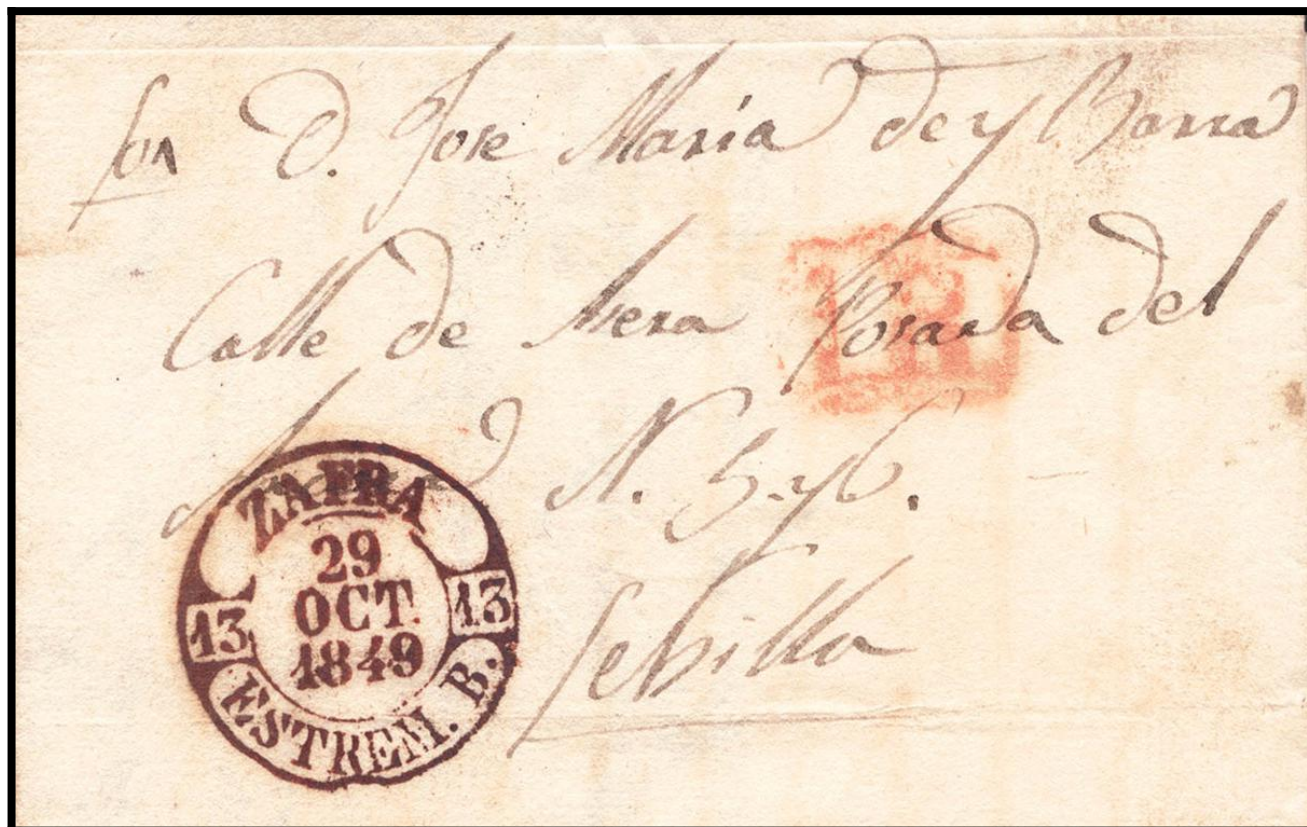 Sor D. Jose Maria de yBarra
Calle de Mera Posada del
N. 5. y 6.
Sebilla
1R
ZAFRA
29
OCT.
1849
13
13
ESTREM. B.